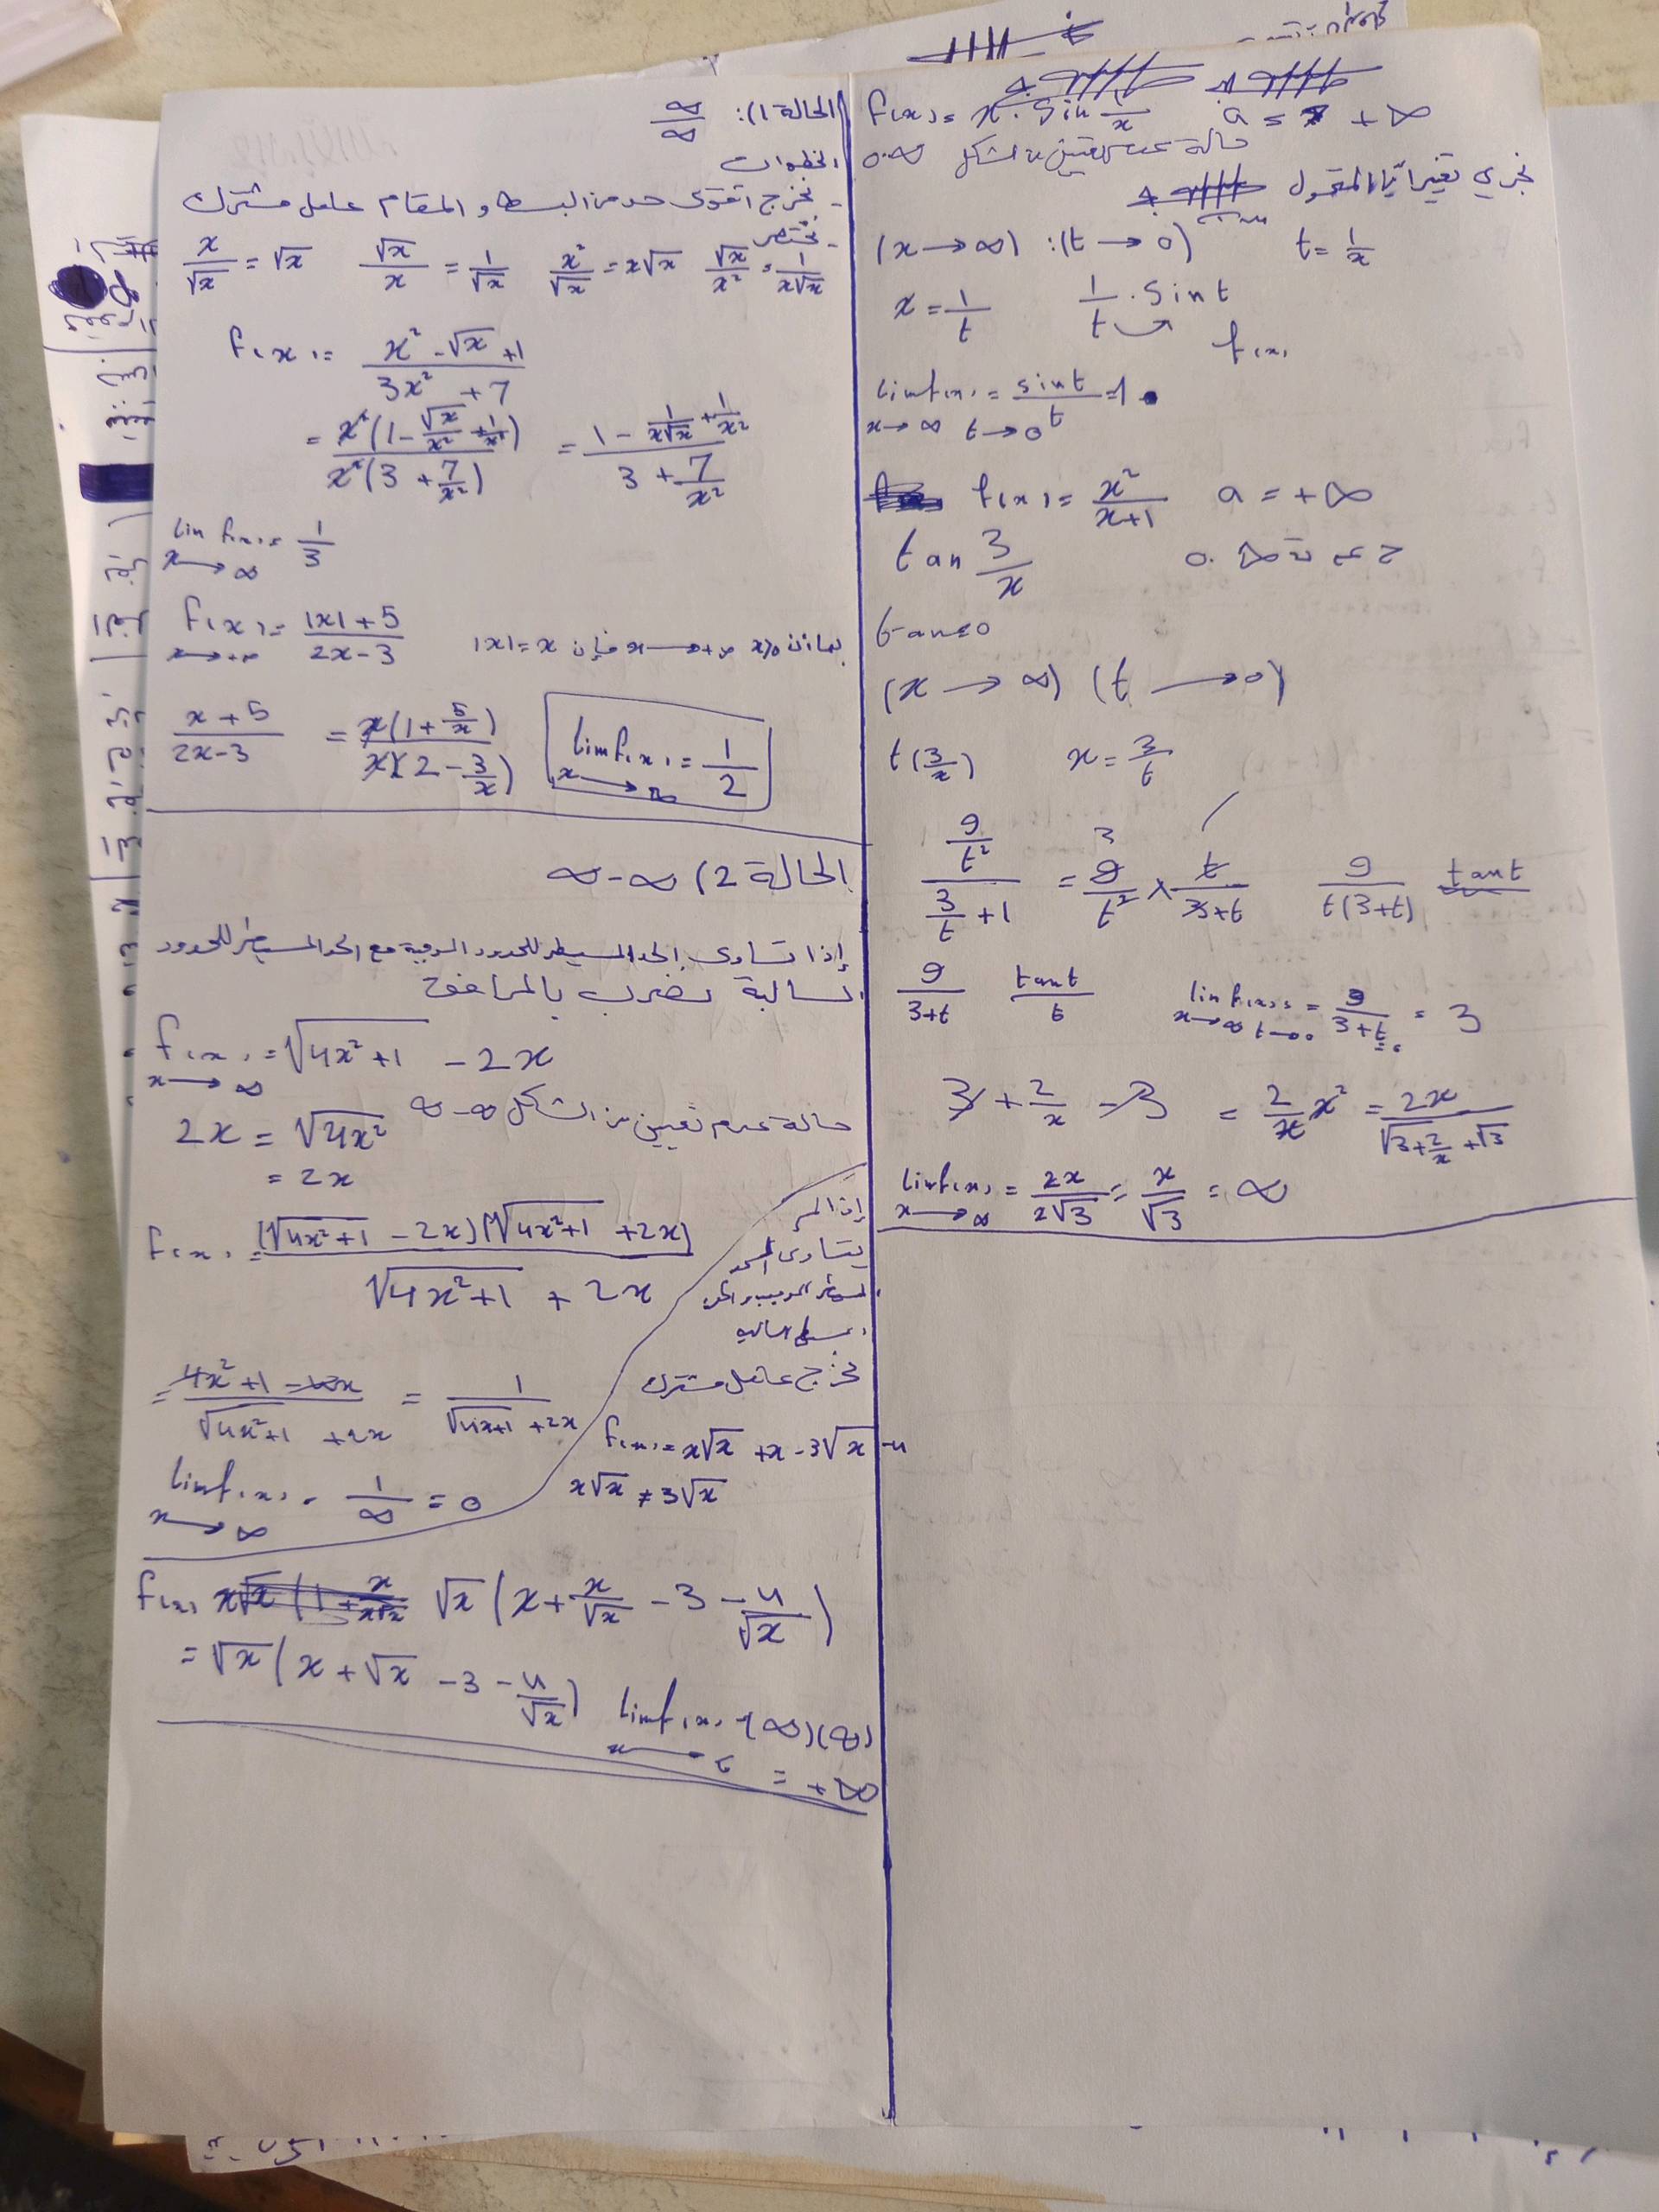 الحالة 1): ∞/∞
الخطوات
- نخرج أقوى حد من البسط و المقام عامل مشترك
- نختصر
x/√x = √x   √x/x = 1/√x   x²/√x = x√x   √x/x² = 1/x√x
f(x) = (x² - √x + 1)/(3x² + 7)
= x²(1 - √x/x² + 1/x²)/x²(3 + 7/x²) = (1 - 1/x√x + 1/x²)/(3 + 7/x²)
lim f(x) = 1/3
x → ∞
f(x) = (|x| + 5)/(2x - 3)   بما أن x → +∞ فإن |x| = x
x → +∞
(x + 5)/(2x - 3) = x(1 + 5/x)/x(2 - 3/x)   lim f(x) = 1/2
x → ∞
الحالة 2) ∞ - ∞
إذا تساوى الحد المسيطر للحدود الموجبة مع الحد المسيطر للحدود
السالبة نضرب بالمرافق
f(x) = √(4x² + 1) - 2x
x → ∞
حالة عدم تعيين من الشكل ∞ - ∞
2x = √4x²
= 2x
f(x) = (√(4x² + 1) - 2x)(√(4x² + 1) + 2x)
√(4x² + 1) + 2x
= 1/(√(4x+1) + 2x)
lim f(x) = 1/∞ = 0
x → ∞
إذا لم
يتساوى الحد
نخرج عامل مشترك
f(x) = x√x + x - 3√x - 4
x√x ≠ 3√x
f(x) √x(x + x/√x - 3 - 4/√x)
= √x(x + √x - 3 - 4/√x)   lim f(x) = (∞)(∞)
= +∞
f(x) = x . sin 1/x   a = +∞
حالة عدم تعيين من الشكل 0.∞
نجري تغييراً بالمتحول
(x → ∞) : (t → 0)   t = 1/x
x = 1/t   1/t . sin t
f(x)
lim f(x) = sin t/t = 1
x → ∞   t → 0
f(x) = x²/(x+1)   a = +∞
tan 3/x   ح ع ت 0.∞
tan = 0
(x → ∞) (t → 0)
t(3/x)   x = 3/t
(9/t²)/(3/t + 1) = 9/t² × t/(3+t)   9/t(3+t)   tan t
9/(3+t)   tan t/t   lim f(x) = 9/(3+t) = 3
x → ∞   t → 0
3 + 2/x - 3 = 2/x x² = 2x/(√(3 + 2/x) + √3)
lim f(x) = 2x/2√3 = x/√3 = ∞
x → ∞